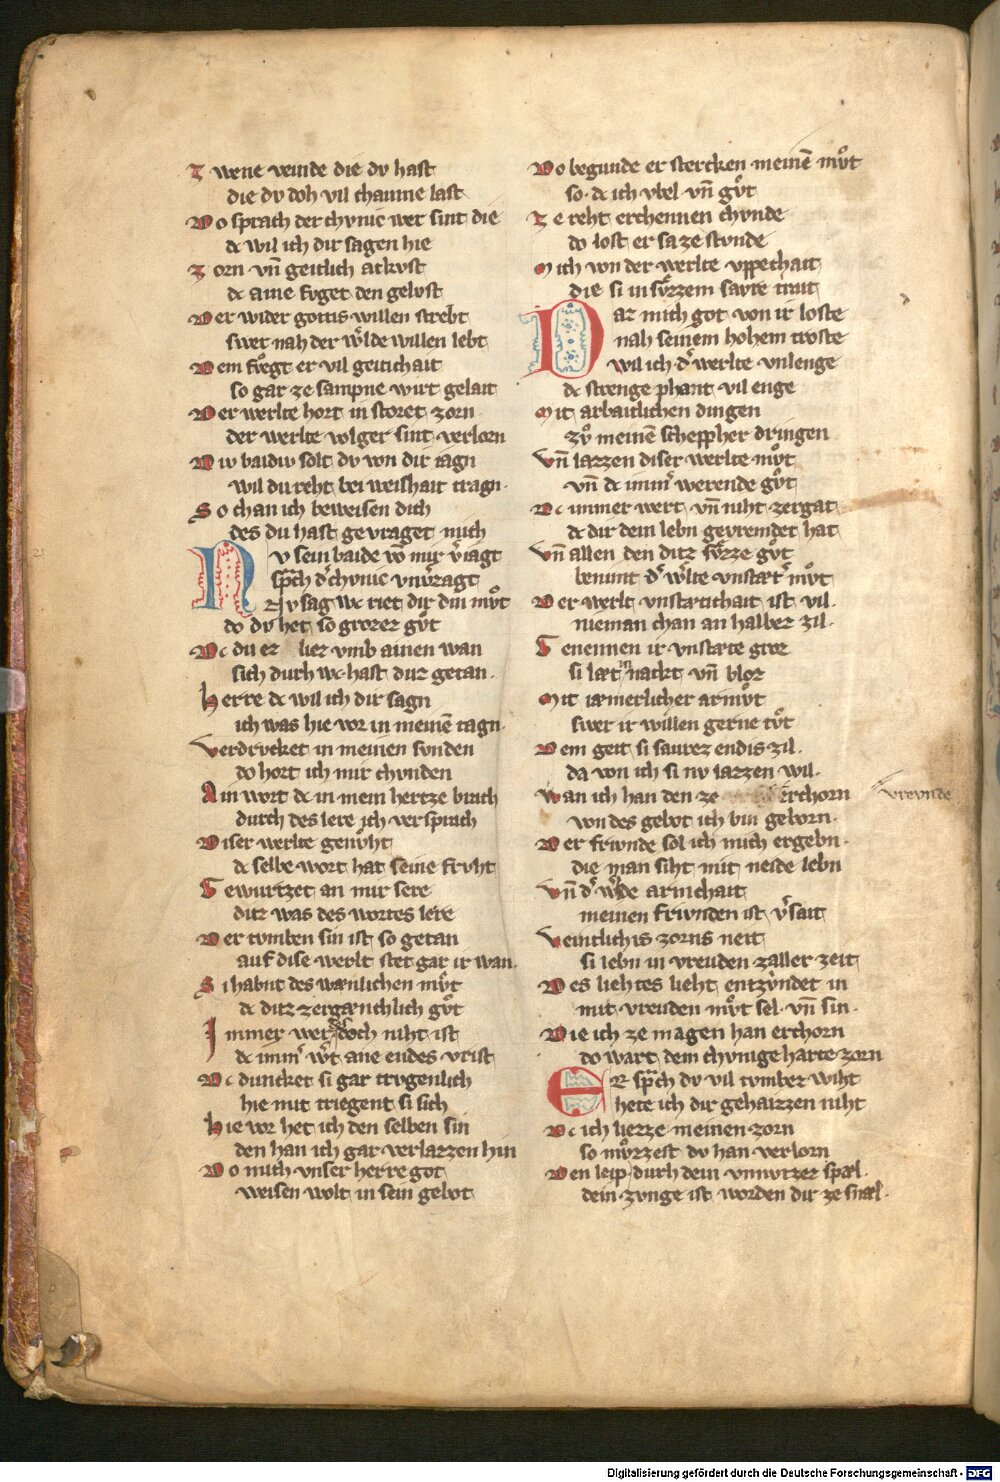 Zwene veinde die dv hast
die dv doh vil chaume last
Do sprach der chvnic wer sint die
dc wil ich dir sagen hie
Zorn vn̄ geitlich ackvst
dc aine fvget den gelvst
Der wider gottis willen strebt
swer nah der wͤlde willen lebt
Dem fvͦgt er vil geitichait
so gar ze sampne wirt gelait
Der werlte hort in storet zorn
der werlte volger sint verlorn
Div baidiv solt dv von dir iagn
wil du reht bei weishait tragn
So chan ich beweisen dich
des du hast gevraget mich
Nv sein baide vō mir v̓iagt
sp̄ch d̓ chvnic vnv̓zagt
Nv sag wc riet dir din mvͦt
do dv het so grozer gvͦt
Dc du er lier vmb ainen wan
sich durh wc hast duz getan
Herre dc wil ich dir sagn
ich was hie vor in meinē tagn
Verdrvcket in meinen svnden
do hort ich mir chvnden
Ain wort dc in mein hertze brach
durch des lere ich versprach
Diser werlte genvͦht
dc selbe wort hat seine frvht
Gewurtzet an mir sere
ditz was des wortes lere
Der tvmben sin ist so getan
auf dise werlt stet gar ir wan
Si habnt des wærlichen mvͦt
dc ditz zergænchlich gvͦt
Immer wer doch niht ist
dc imm̓ w̓t ane endes vrist
Dc duncket si gar trvgenlich
hie mit triegent si sich
Hie vor het ich den selben sin
den han ich gar verlazzen hin
Do mich vnser herre got
weisen wolt in sein gebot
Do begunde er stercken meinē mvͦt
so dc ich vbel vn̄ gvͦt
Ze reht erchennen chvnde
do lost er sa ze stvnde
Mich von der werlte vppechait
die si in svͦzzem sayte trait
Daz mich got von ir loste
nah seinem hohem troste
wil ich d̓ werlte vnlenge
dc strenge phant vil enge
Mit arbaitlichen dingen
zvͦ meinē scheppher dringen
Vn̄ lazzen diser werlte mvͦt
vn̄ dc imm̓ werende gvͦt
Dc immer wert vn̄ niht zergat
dc dir dein lebn gevremdet hat
Vn̄ allen den ditz svͦzze gvͦt
benimt d̓ w̓lte vnstæt̓ mvͦt
Der werlt vnstætichait ist vil
nieman chan an halber zil
Genennen ir vnstæte groz
si læt in nackt vn̄ bloz
Mit iæmerlicher armvͦt
swer ir willen gerne tvͦt
Dem geit si saurez endis zil
da von ich si nv lazzen wil
Wan ich han den ze erchorn
vrevnde
von des gebot ich bin geborn
Der frivnde sol ich mich ergebn
die man siht mit neide lebn
Vn̄ d̓ w̓lde armchait
meinen frivnden ist v̓sait
Veintlichis zorns neit
si lebn in vreuden zaller zeit
Des liehtes lieht entzvndet in
mit vreuden mvͦt sel vn̄ sin
Die ich ze magen han erchorn
do wart dem chvnige harte zorn
Er sp̄ch dv vil tvmber wiht
hete ich dir gehaizzen niht
Dc ich liezze meinen zorn
so mvͦzzest dv han verlorn
Den leip durh dein vnnvtzer spæl
dein zvnge ist worden dir ze snæl
Digitalisierung gefördert durch die Deutsche Forschungsgemeinschaft - DFG